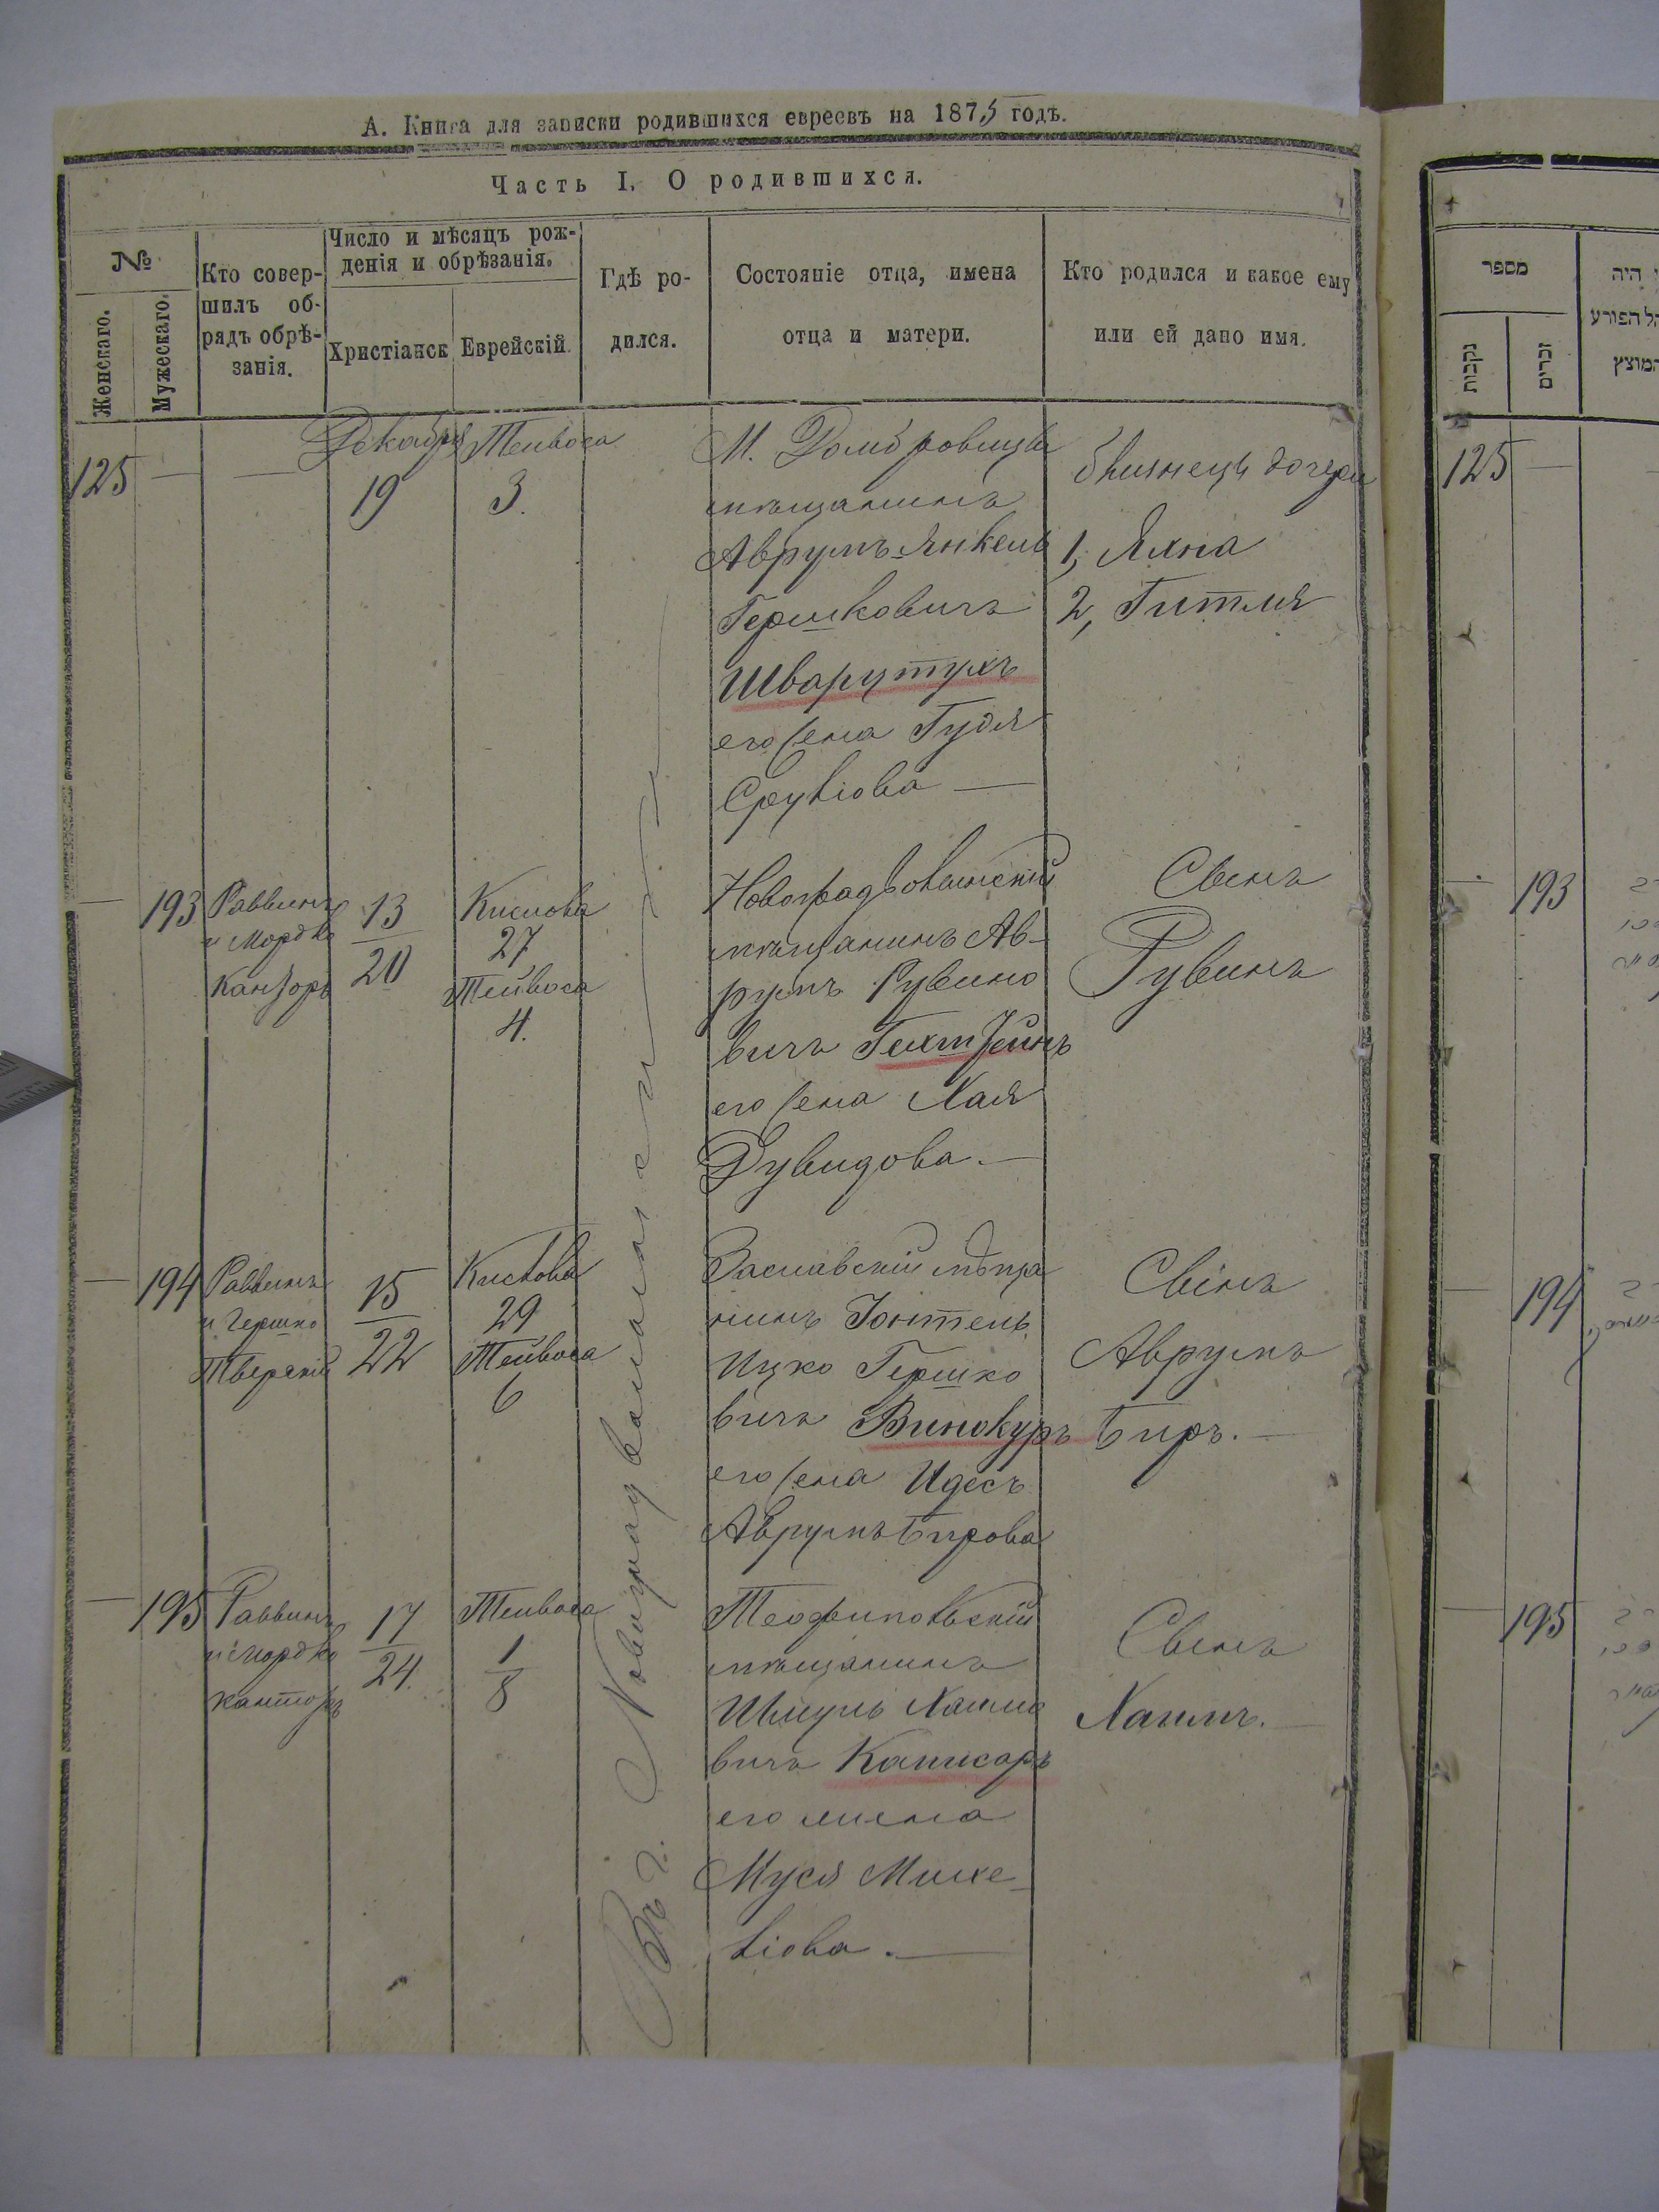 А. Книга для записки родившихся евреевъ на 1875 годъ.
Часть I. О родившихся.
№
Женскаго.
Мужескаго.
Кто совер-
шилъ об-
рядъ обрѣ-
занія.
Число и мѣсяцъ рож-
денія и обрѣзанія.
Христіанск
Еврейскій
Гдѣ ро-
дился.
Состояніе отца, имена
отца и матери.
Кто родился и какое ему
или ей дано имя.
125
Декабря
19
Тейвоса
3.
М. Домбровицы
мѣщанинъ
Аврумъ-Янкель
Гершковичъ
Шварцтухъ
его жена Гудя
Сруліова
близнецы дочери
1, Яхна
2, Гитля
193
Раввинъ
и Мордко
Канторъ
13
20
Кислова
27
Тейвоса
4.
Новоградволынскій
мѣщанинъ Ав-
румъ Рувино
вичъ
его жена Хая
Дувидова.
Сынъ
Рувинъ
194
Раввинъ
и Гершко
Тверскій
15
22
Кислова
29
Тейвоса
6
Заславскій мѣща
нинъ Юнтель
Ицко Гершко
вичъ Винокуръ
его жена Идесъ
Аврумъ Бирова
Сынъ
Аврумъ
Биръ.
195
Раввинъ
и Мордко
Канторъ
17
24.
Тейвоса
1
8
Теофипольскій
мѣщанинъ
Шмуль Хаимо
вичъ Камисаръ
его жена
Муся Михе-
ліова.
Сынъ
Хаимъ.
Въ г. Новоградволынскѣ
מספר
נקבות
זכרים
125
193
194
195